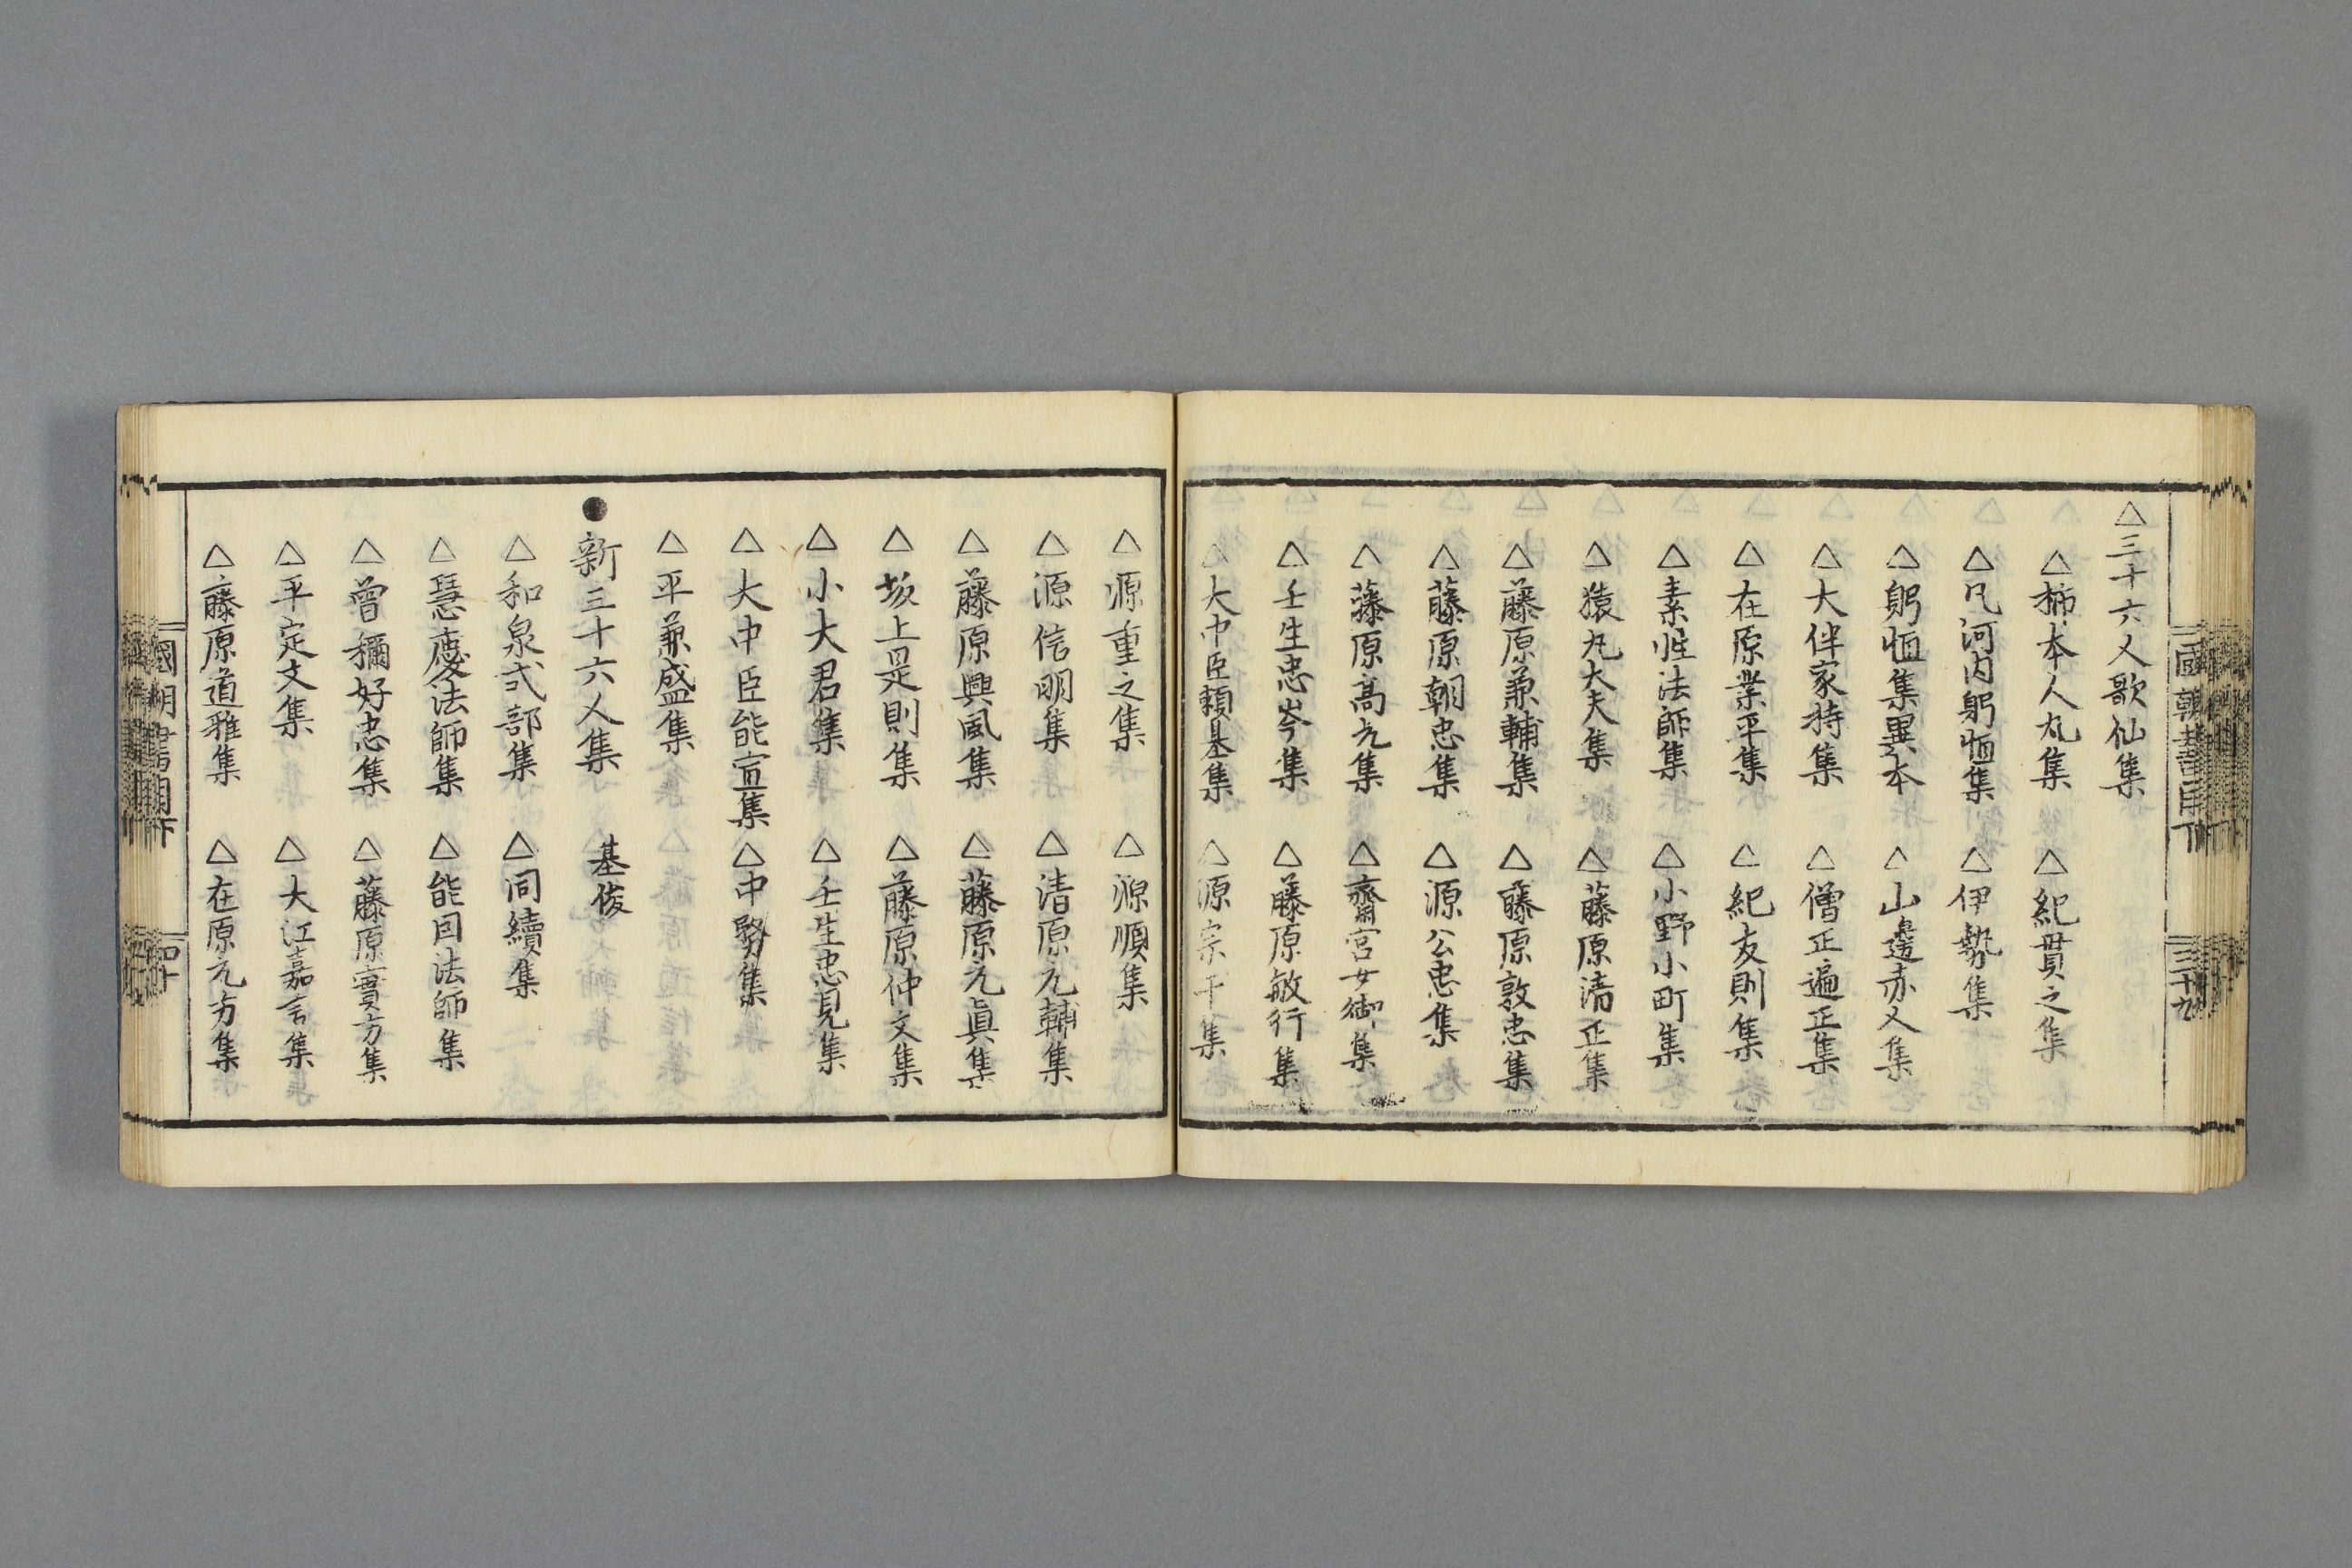 國朝書目下
三十九
△三十六人歌仙集
△柿本人丸集 △紀貫之集
△凡河内躬恒集 △伊勢集
△躬恒集異本 △山邊赤人集
△大伴家持集 △僧正遍正集
△在原業平集 △紀友則集
△素性法師集 △小野小町集
△猿丸大夫集 △藤原清正集
△藤原兼輔集 △藤原敦忠集
△藤原朝忠集 △源公忠集
△藤原高光集 △齋宮女御集
△壬生忠岑集 △藤原敏行集
△大中臣頼基集 △源宗于集
△源重之集 △源順集
△源信明集 △清原元輔集
△藤原興風集 △藤原元眞集
△坂上是則集 △藤原仲文集
△小大君集 △壬生忠見集
△大中臣能宣集 △中務集
△平兼盛集
●新三十六人集 基俊
△和泉式部集 △同續集
△慧慶法師集 △能因法師集
△曾禰好忠集 △藤原實方集
△平定文集 △大江嘉言集
△藤原道雅集 △在原元方集
國朝書目下
四十